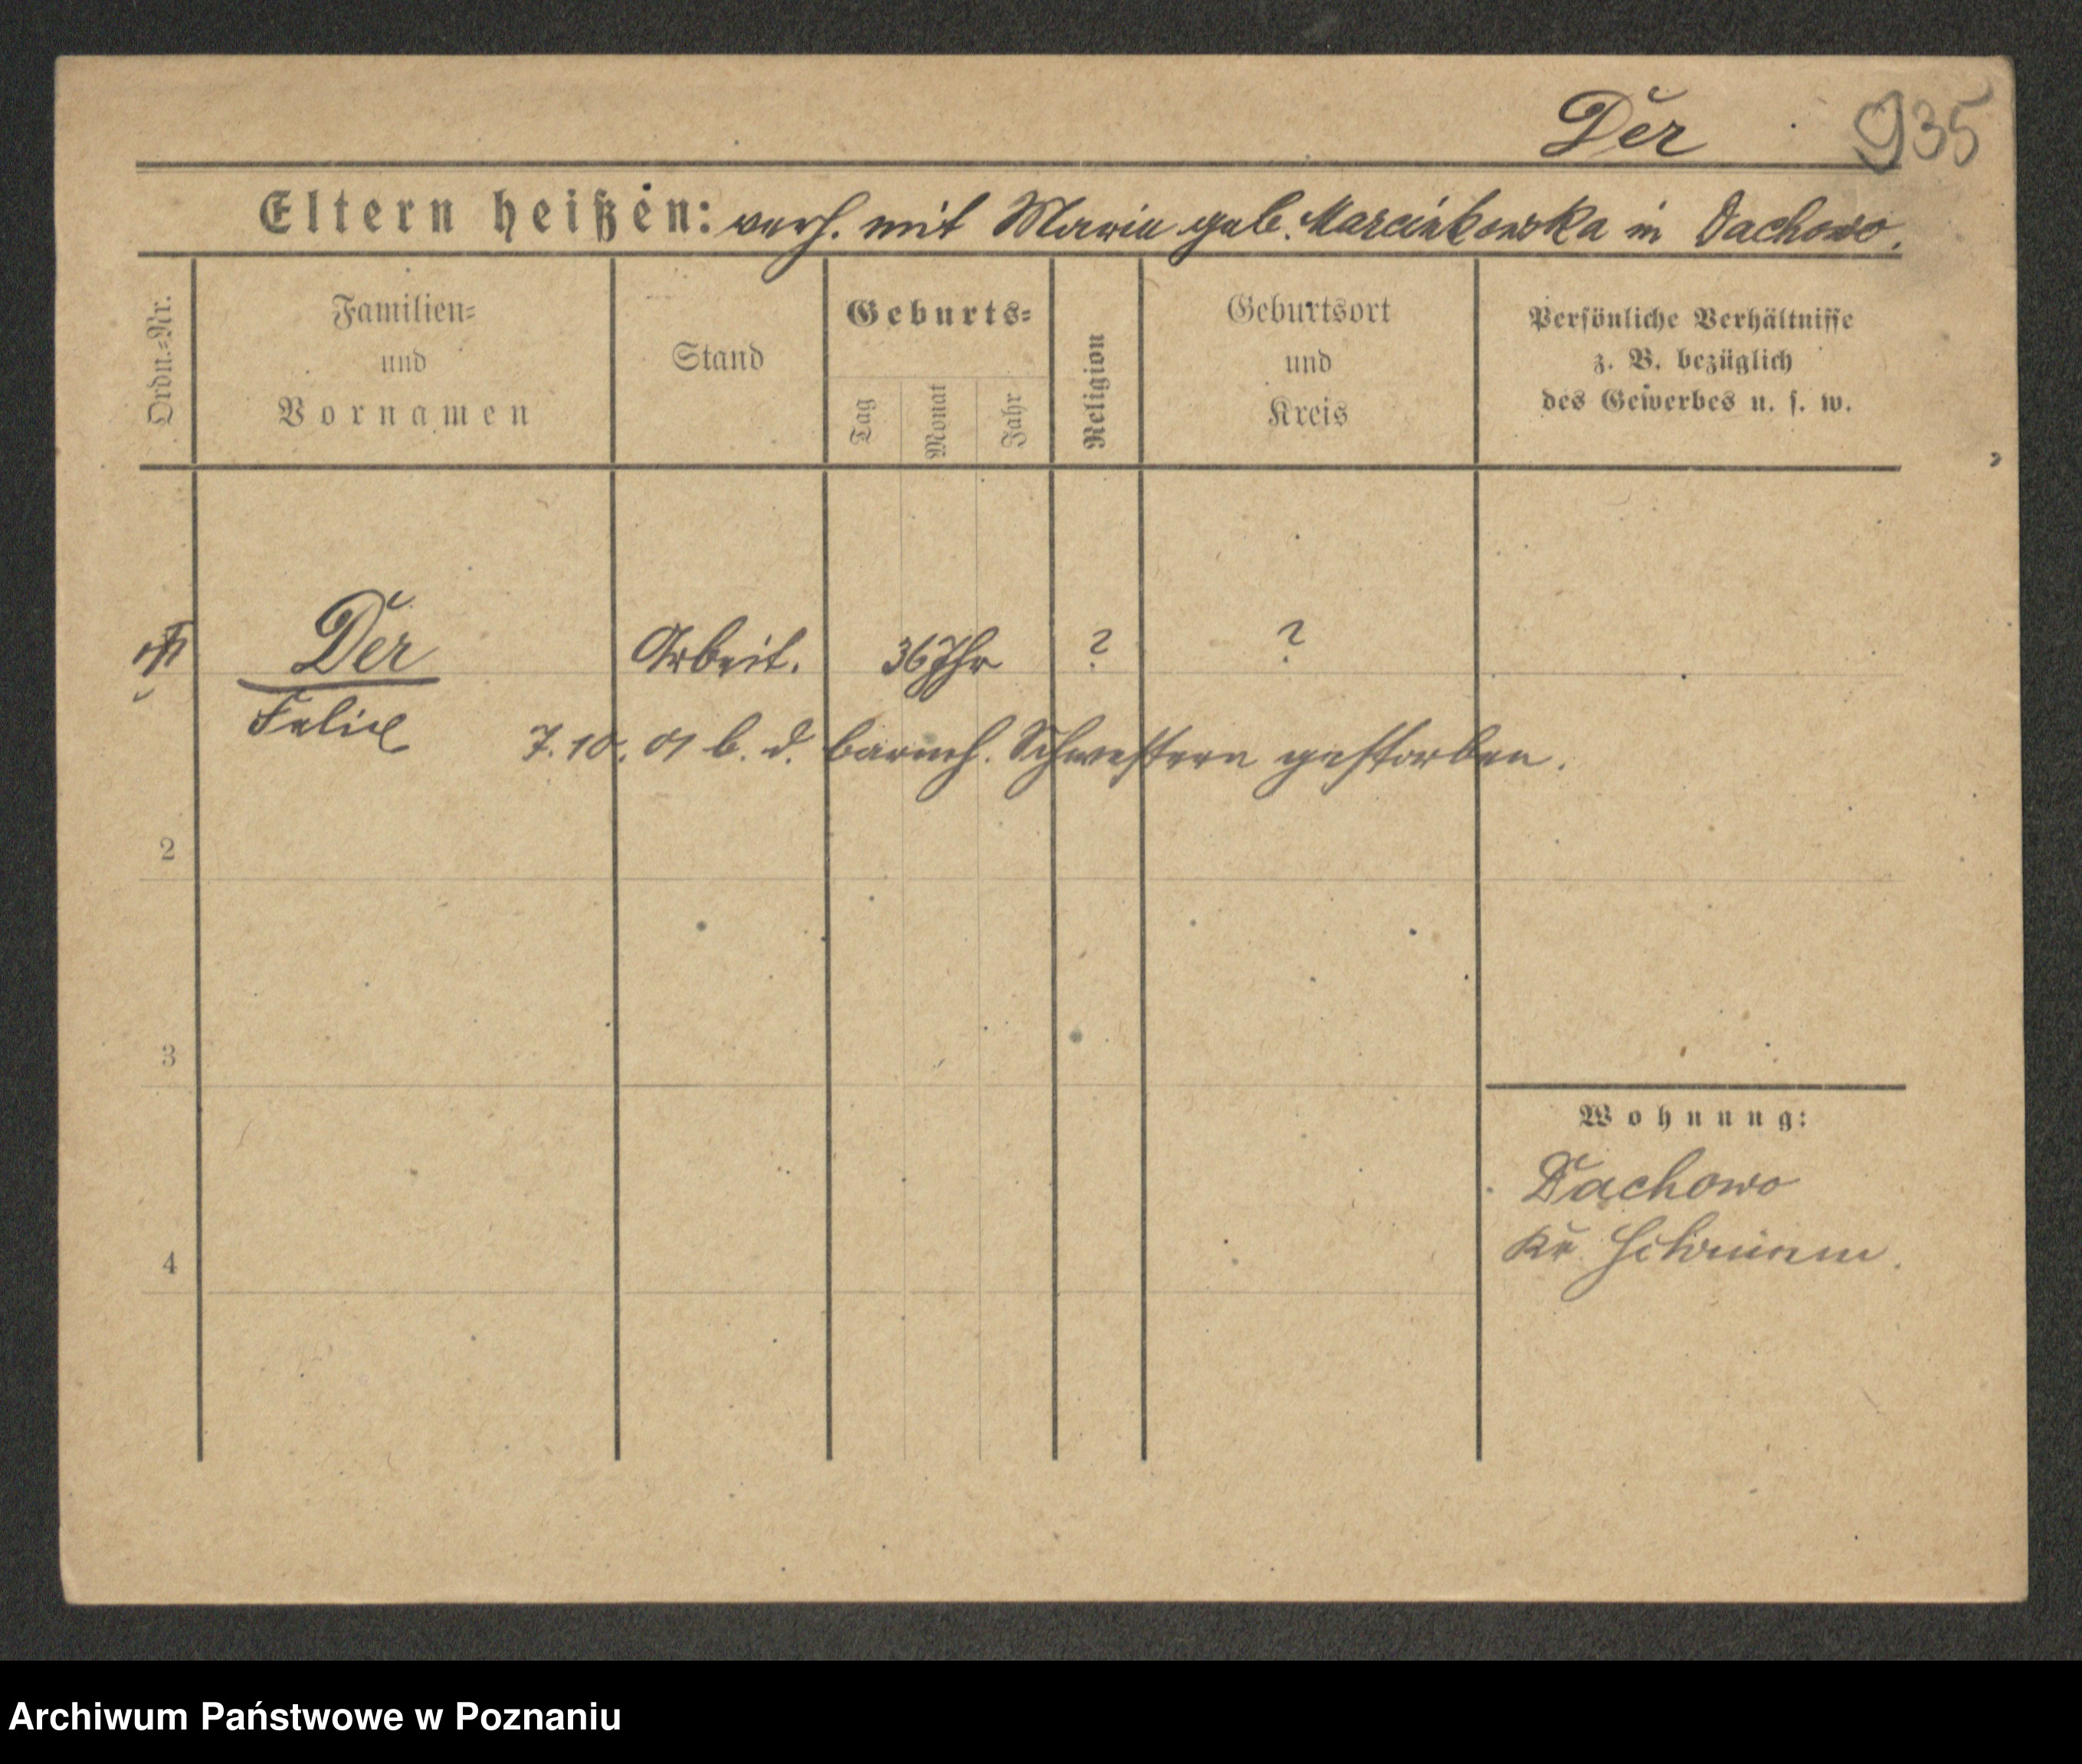 Der 935
Eltern heißen: verh. mit Maria geb. Marcinkowska in Dachowo.
Ordn.-Nr.
Familien-
und
Vornamen
Stand
Geburts-
Tag
Monat
Jahr
Religion
Geburtsort
und
Kreis
Persönliche Verhältnisse
z. B. bezüglich
des Gewerbes u. s. w.
Der Arbeit. 36 Jhr ? ?
Felix
7. 10. 01 b. d. barmh. Schwestern gestorben.
2
3
4
Wohnung:
Dachowo
Kr. Schrimm.
Archiwum Państwowe w Poznaniu